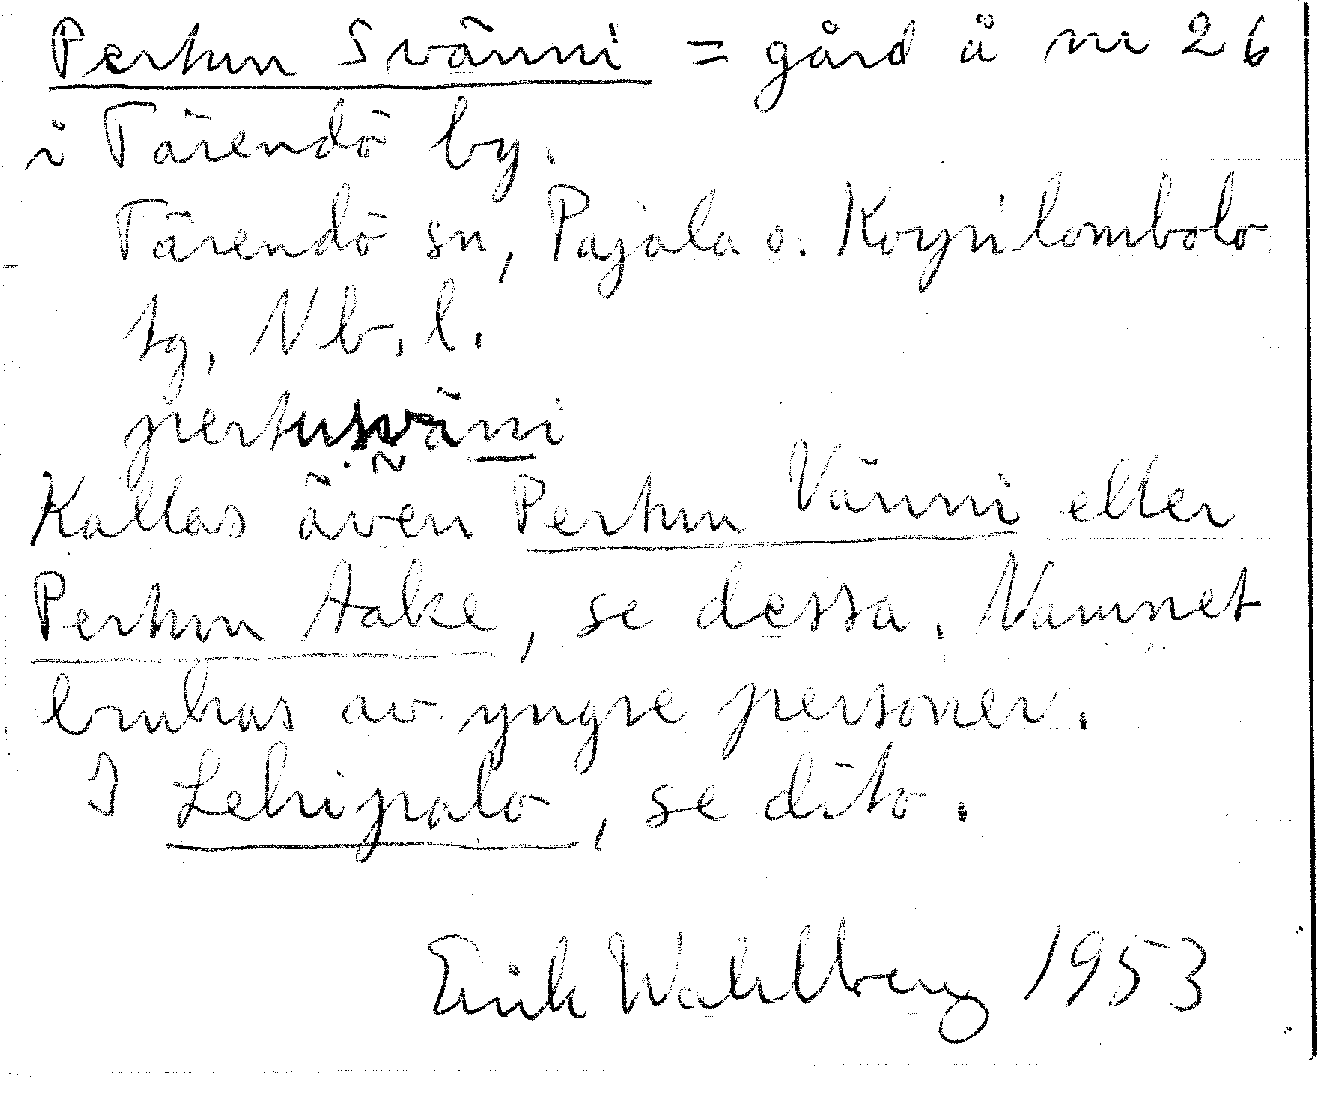 Pertun Svänni = gård å nr 26
i Tärendö by.
Tärendö sn, Pajala o. Korpilombolo
tg, Nb. l.
pertusväni
Kallas även Pertun Vänni eller
Pertun Aake, se dessa. Namnet
brukas av yngre personer.
I Lehipalo, se dito.
Erik Wahlberg 1953